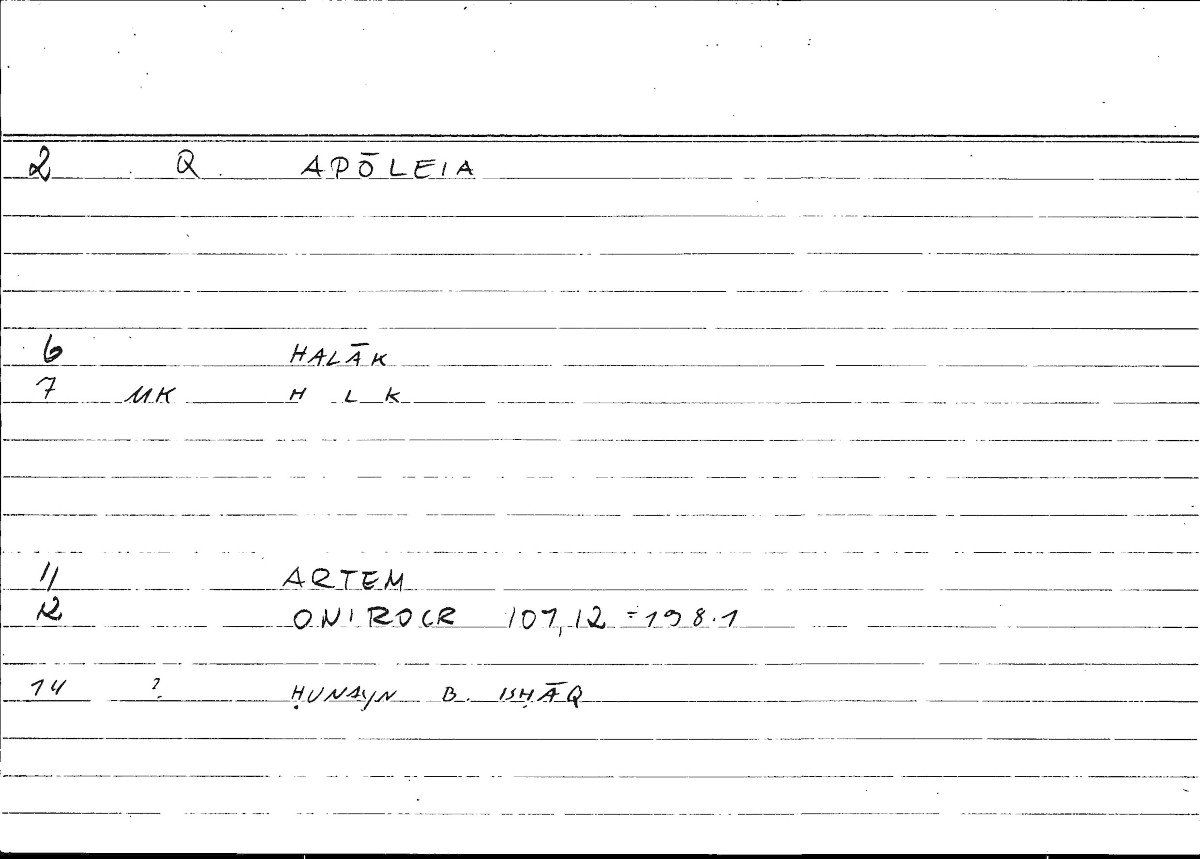 2 Q APŌLEIA
6 HALĀK
7 MK H L K
11 ARTEM
12 ONIROCR 107,12 = 198.1
14 ? ḤUNAYN B. ISḤĀQ